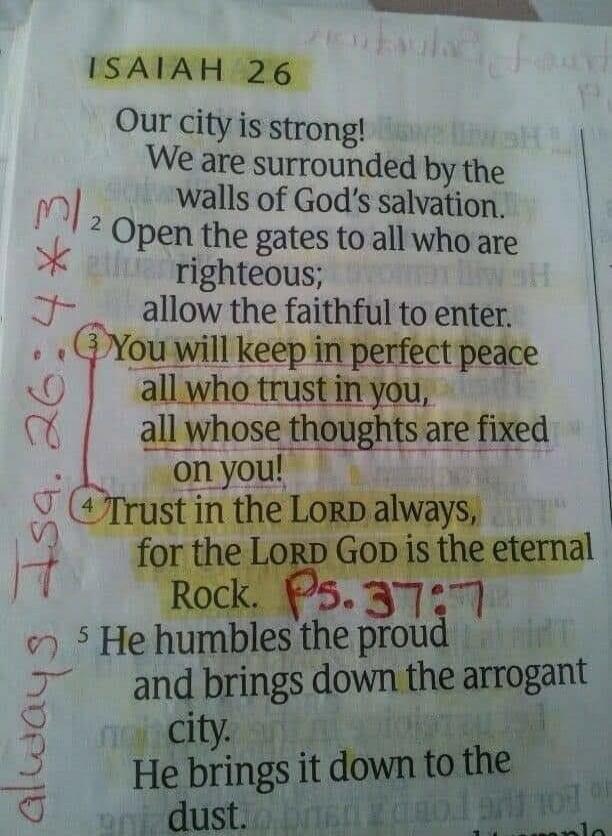 ISAIAH 26
Our city is strong!
We are surrounded by the
walls of God's salvation.
2 Open the gates to all who are
righteous;
allow the faithful to enter.
3 You will keep in perfect peace
all who trust in you,
all whose thoughts are fixed
on you!
4 Trust in the LORD always,
for the LORD GOD is the eternal
Rock. Ps. 37:7
5 He humbles the proud
and brings down the arrogant
city.
He brings it down to the
dust.
always Isa. 26:4 * 3